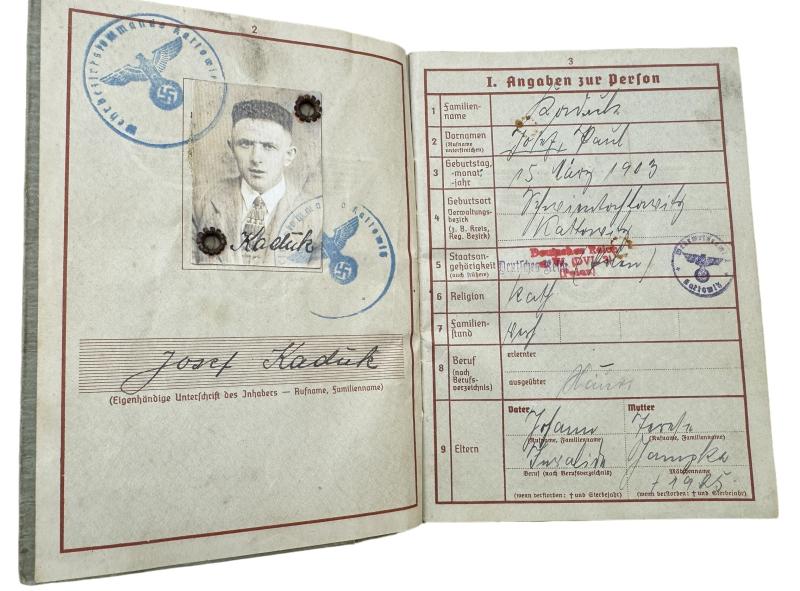 2
Wehrbezirkskommando Kattowitz
Kaduk
Josef Kaduk
(Eigenhändige Unterschrift des Inhabers — Rufname, Familienname)
3
I. Angaben zur Person
1 Familien-
name
Kaduk
2 Vornamen
(Rufname
unterstreichen)
Josef, Paul
3 Geburtstag,
-monat,
-jahr
15 März 1903
4 Geburtsort
Verwaltungs-
bezirk
(z. B. Kreis,
Reg. Bezirk)
Schwientochlowitz
Kattowitz
5 Staatsan-
gehörigkeit
(auch frühere)
Deutsches Reich
(Polen)
6 Religion
Kath
7 Familien-
stand
verh
8 Beruf
(nach
Berufs-
verzeichnis)
erlernter
ausgeübter
9 Eltern
Vater
Johann
(Rufname, Familienname)
Invalide
Beruf (nach Berufsverzeichnis)
(wenn verstorben: † und Sterbejahr)
Mutter
(Rufname, Familienname)
Mädchenname
† 1925
(wenn verstorben: † und Sterbejahr)